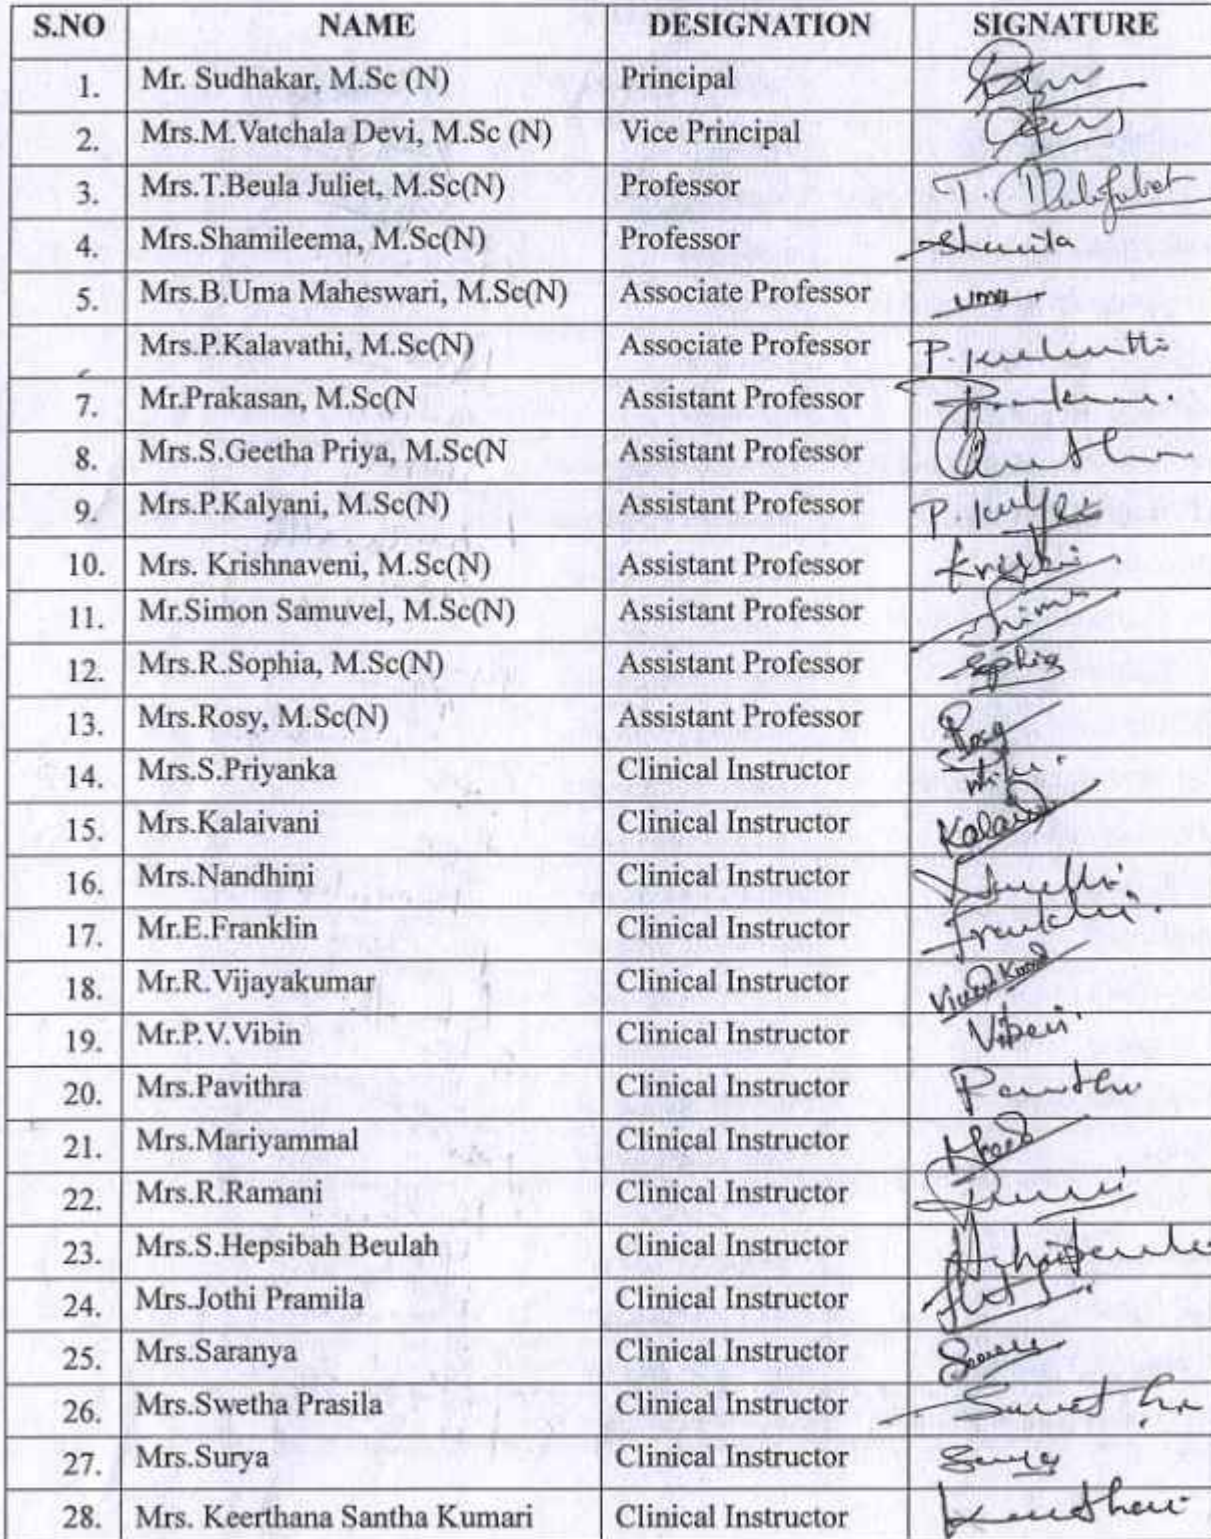 S.NO NAME DESIGNATION SIGNATURE
1. Mr. Sudhakar, M.Sc (N) Principal
2. Mrs.M.Vatchala Devi, M.Sc (N) Vice Principal
3. Mrs.T.Beula Juliet, M.Sc(N) Professor T. Beula Juliet
4. Mrs.Shamileema, M.Sc(N) Professor
5. Mrs.B.Uma Maheswari, M.Sc(N) Associate Professor Uma
Mrs.P.Kalavathi, M.Sc(N) Associate Professor
7. Mr.Prakasan, M.Sc(N Assistant Professor
8. Mrs.S.Geetha Priya, M.Sc(N Assistant Professor
9. Mrs.P.Kalyani, M.Sc(N) Assistant Professor
10. Mrs. Krishnaveni, M.Sc(N) Assistant Professor
11. Mr.Simon Samuvel, M.Sc(N) Assistant Professor
12. Mrs.R.Sophia, M.Sc(N) Assistant Professor Sophia
13. Mrs.Rosy, M.Sc(N) Assistant Professor Rosy
14. Mrs.S.Priyanka Clinical Instructor
15. Mrs.Kalaivani Clinical Instructor
16. Mrs.Nandhini Clinical Instructor
17. Mr.E.Franklin Clinical Instructor Franklin
18. Mr.R.Vijayakumar Clinical Instructor
19. Mr.P.V.Vibin Clinical Instructor Vibin
20. Mrs.Pavithra Clinical Instructor
21. Mrs.Mariyammal Clinical Instructor
22. Mrs.R.Ramani Clinical Instructor
23. Mrs.S.Hepsibah Beulah Clinical Instructor
24. Mrs.Jothi Pramila Clinical Instructor
25. Mrs.Saranya Clinical Instructor
26. Mrs.Swetha Prasila Clinical Instructor
27. Mrs.Surya Clinical Instructor Surya
28. Mrs. Keerthana Santha Kumari Clinical Instructor